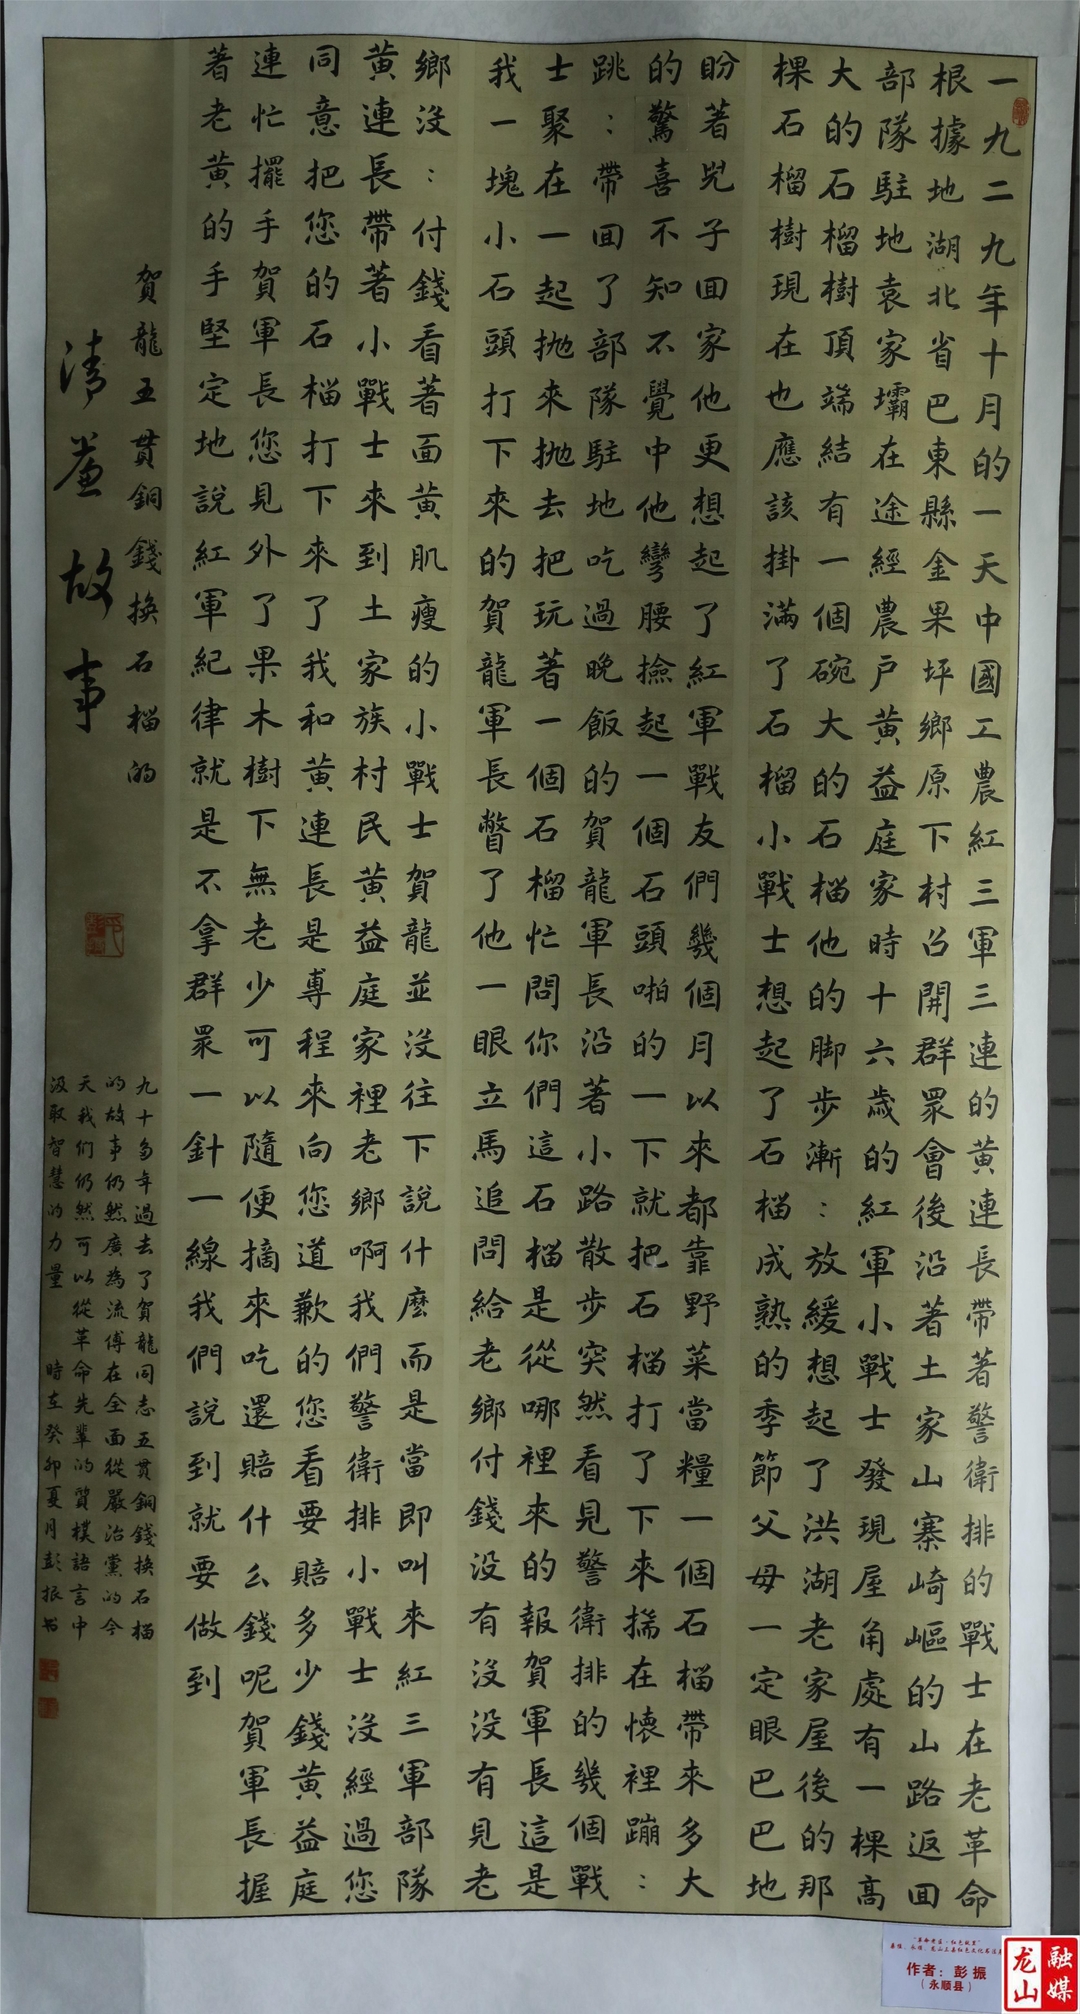 一九二九年十月的一天中國工農紅三軍三連的黃連長帶著警衛排的戰士在老革命
根據地湖北省巴東縣金果坪鄉原下村召開群眾會後沿著土家山寨崎嶇的山路返回
部隊駐地袁家壩在途經農戶黃益庭家時十六歲的紅軍小戰士發現屋角處有一棵高
大的石榴樹頂端結有一個碗大的石榴他的腳步漸：放緩想起了洪湖老家屋後的那
棵石榴樹現在也應該掛滿了石榴小戰士想起了石榴成熟的季節父母一定眼巴巴地
盼著兒子回家他更想起了紅軍戰友們幾個月以來都靠野菜當糧一個石榴帶來多大
的驚喜不知不覺中他彎腰撿起一個石頭啪的一下就把石榴打了下來揣在懷裡蹦：
跳：帶回了部隊駐地吃過晚飯的賀龍軍長沿著小路散步突然看見警衛排的幾個戰
士聚在一起拋來拋去把玩著一個石榴忙問你們這石榴是從哪裡來的報賀軍長這是
我一塊小石頭打下來的賀龍軍長瞥了他一眼立馬追問給老鄉付錢沒有沒沒有見老
鄉沒：付錢看著面黃肌瘦的小戰士賀龍並沒往下說什麼而是當即叫來紅三軍部隊
黃連長帶著小戰士來到土家族村民黃益庭家裡老鄉啊我們警衛排小戰士沒經過您
同意把您的石榴打下來了我和黃連長是專程來向您道歉的您看要賠多少錢黃益庭
連忙擺手賀軍長您見外了果木樹下無老少可以隨便摘來吃還賠什么錢呢賀軍長握
著老黃的手堅定地說紅軍紀律就是不拿群眾一針一線我們說到就要做到
賀龍五貫銅錢換石榴的
清蓮故事
九十多年過去了賀龍同志五貫銅錢換石榴
的故事仍然廣為流傳在全面從嚴治黨的今
天我们仍然可以從革命先輩的質樸語言中
汲取智慧的力量 時在癸卯夏月彭振书
“革命老区·红色故里”
作者：彭振
（永顺县）
龙山
融媒